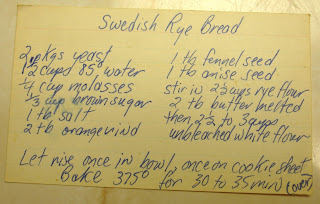 Swedish Rye Bread
2 pkgs yeast
1½ cups 85° water
¼ cup molasses
⅓ cup brown sugar
1 tb salt
2 tb orange rind
1 tb fennel seed
1 tb anise seed
stir in 2½ cups rye flour
2 tb butter melted
then, 2½ to 3 cups
unbleached white flour
Let rise once in bowl, once on cookie sheet
Bake 375° for 30 to 35 min (oven)